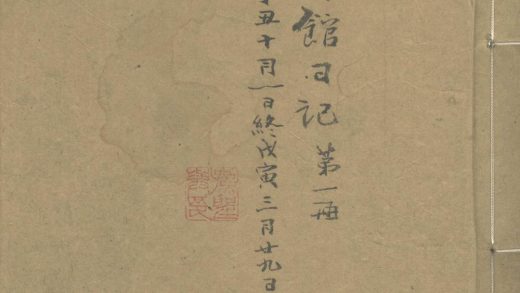 館日記 第一册
丑十月一日終戊寅三月廿九日